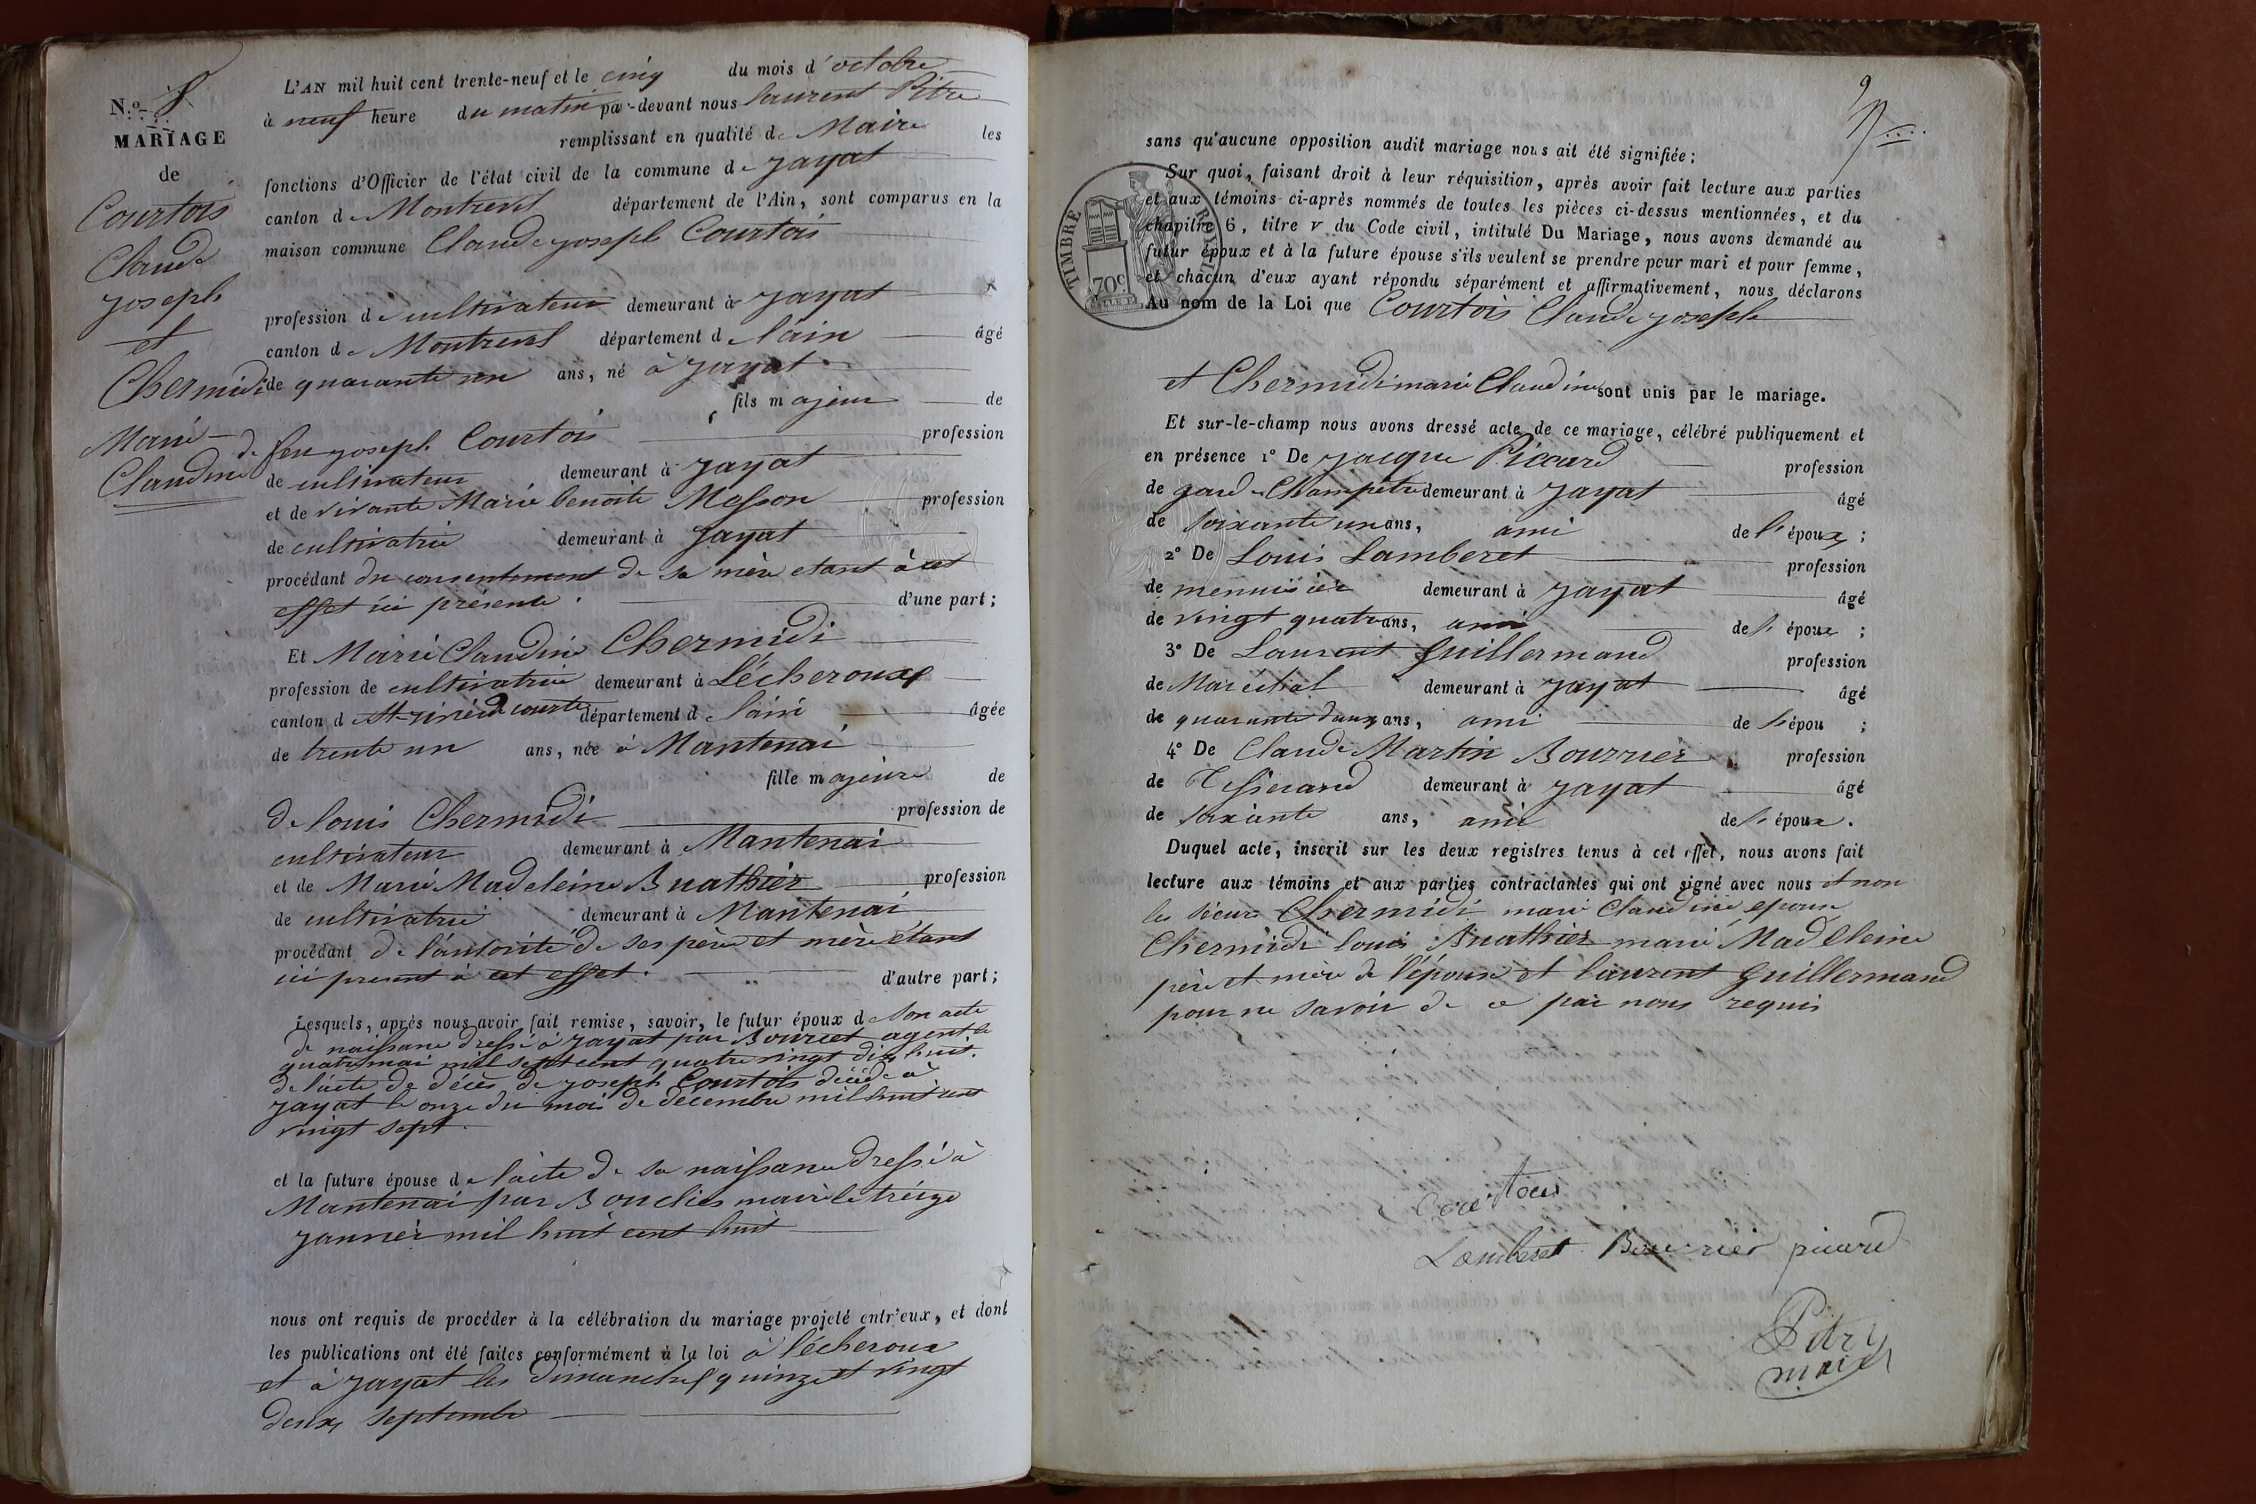 N.º 8
MARIAGE
de
Courtois
Claude
joseph
et
Chermidi
Marie
Claudine
L'AN mil huit cent trente-neuf et le cinq du mois d'octobre
à neuf heure du matin par-devant nous laurent Pitre
remplissant en qualité de Maire les
fonctions d'Officier de l'état civil de la commune de jayat
canton de Montrevel département de l'Ain, sont comparus en la
maison commune Claude joseph Courtois
profession de cultivateur demeurant à jayat
canton de Montrevel département de lain âgé
de quarante un ans, né à jayat
fils majeur de
de feu joseph Courtois profession
de cultivateur demeurant à jayat
et de vivante Marie benoite Messon profession
de cultivatrice demeurant à Jayat
procédant du consentement de sa mère etant à cet
effet ici présente. d'une part;
Et Marie Claudine Chermidi
profession de cultivatrice demeurant à Lécheroux
canton d St-trivier de courtes département d lain âgée
de trente un ans, née à Mantenai
fille majeure de
de louis Chermidi profession de
cultivateur demeurant à Mantenai
et de Marie Madeleine Buathier profession
de cultivatrice demeurant à Mantenai
procédant de l'autorité de ses père et mère étant
ici present à cet effet. d'autre part;
Lesquels, après nous avoir fait remise, savoir, le futur époux de son acte
de naissance dressé à jayat par Bourcet agent le
quatre mai mil sept cent quatre vingt dix huit.
de l'acte de décès de joseph Courtois décédé à
jayat le onze du mois de décembre mil huit cent
vingt sept.
et la future épouse de l'acte de sa naissance dressé à
Mantenai par Bouclier maire le treize
janvier mil huit cent huit
nous ont requis de procéder à la célébration du mariage projeté entr'eux, et dont
les publications ont été faites conformément à la loi à lécheroux
et à jayat les dimanches quinze et vingt
deux septembre
9
sans qu'aucune opposition audit mariage nous ait été signifiée;
TIMBRE ROYAL
70c
Sur quoi, faisant droit à leur réquisition, après avoir fait lecture aux parties
et aux témoins ci-après nommés de toutes les pièces ci-dessus mentionnées, et du
chapitre 6, titre v du Code civil, intitulé Du Mariage, nous avons demandé au
futur époux et à la future épouse s'ils veulent se prendre pour mari et pour femme,
et chacun d'eux ayant répondu séparément et affirmativement, nous déclarons
Au nom de la Loi que Courtois Claude joseph
et Chermidi marie Claudine sont unis par le mariage.
Et sur-le-champ nous avons dressé acte de ce mariage, célébré publiquement et
en présence 1º De jacque Piccard profession
de gard-Champêtre demeurant à jayat âgé
de soixante un ans, ami de l'époux;
2º De Louis Lamberet profession
de menuisier demeurant à jayat âgé
de vingt quatre ans, ami de l'époux;
3º De Laurent Guillermand profession
de Maréchal demeurant à jayat âgé
de quarante deux ans, ami de l'épou;
4º De Claude Martin Bourrier profession
de Tisserand demeurant à jayat âgé
de soixante ans, ami de l'époux.
Duquel acte, inscrit sur les deux registres tenus à cet effet, nous avons fait
lecture aux témoins et aux parties contractantes qui ont signé avec nous et non
les sieurs Chermidi marie Claudine epouse
Chermidi louis Buathier marie Madeleine
père et mère de l'épouse et laurent Guillermand
pour ne savoir de ce par nous requis
Courtois
Lamberet Bourrier picard
Pitre
maire